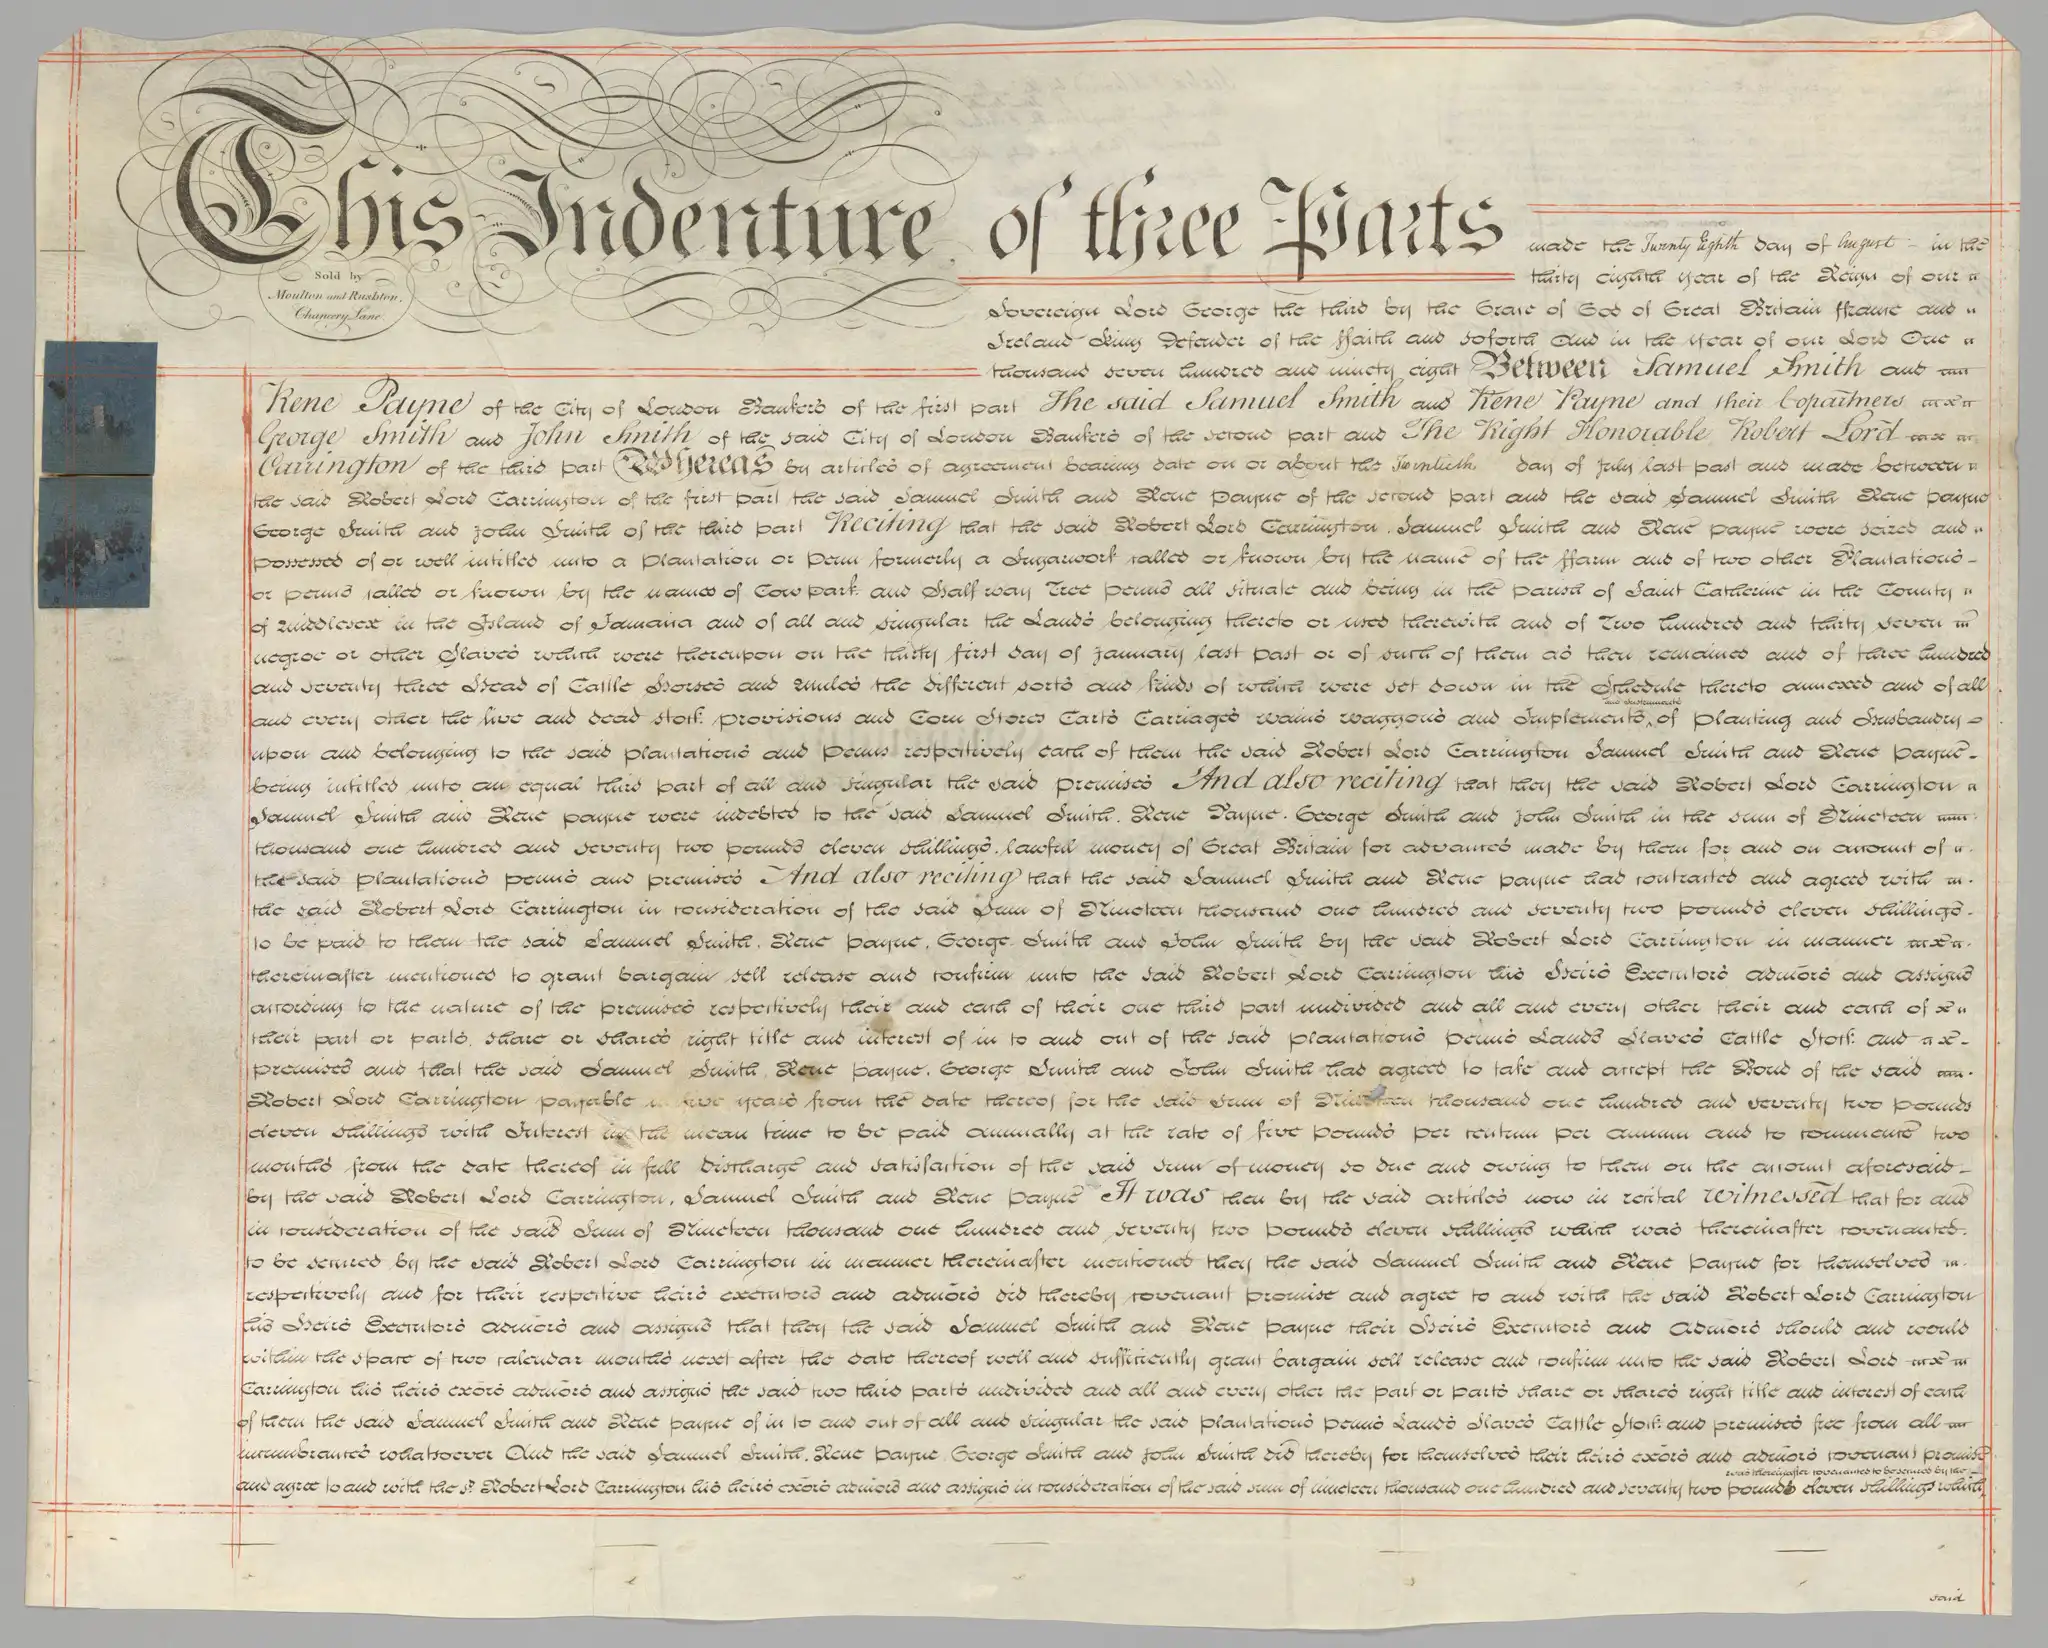 This Indenture of three Parts made the Twenty Eighth day of August in the
Sold by
Moulton and Rushton.
Chancery Lane
thirty eighth year of the Reign of our
Sovereign Lord George the third by the Grace of God of Great Britain ffrance and
Ireland King Defender of the ffaith and soforth And in the year of our Lord One
thousand seven hundred and ninety eight Between Samuel Smith and
Rene Payne of the City of London Bankers of the first part The said Samuel Smith and Rene Payne and their Copartners
George Smith and John Smith of the said City of London Bankers of the second part and The Right Honorable Robert Lord
Carrington of the third part Whereas by articles of agreement bearing date on or about the Twentieth day of July last past and made between
the said Robert Lord Carrington of the first part the said Samuel Smith and Rene Payne of the second part and the said Samuel Smith Rene payne
George Smith and John Smith of the third part Reciting that the said Robert Lord Carrington. Samuel Smith and Rene payne were seized and
possessed of or well intitled unto a plantation or penn formerly a Sugarwork called or known by the name of the ffarm and of two other Plantations
or penns called or known by the names of Cow park and Half way Tree penns all situate and being in the parish of Saint Catherine in the County
of Middlesex in the Island of Jamaica and of all and singular the Lands belonging thereto or used therewith and of Two hundred and thirty seven
negroe or other Slaves which were thereupon on the thirty first day of January last past or of such of them as then remained and of three hundred
and seventy three Head of Cattle Horses and Mules the different sorts and kinds of which were set down in the Schedule thereto annexed and of all
and instruments
and every other the live and dead stock provisions and Corn Stores Carts Carriages wains waggons and Implements of planting and Husbandry
upon and belonging to the said plantations and penns respectively each of them the said Robert Lord Carrington Samuel Smith and Rene payne
being intitled unto an equal third part of all and singular the said premises And also reciting that they the said Robert Lord Carrington
Samuel Smith and Rene payne were indebted to the said Samuel Smith. Rene Payne. George Smith and John Smith in the sum of Nineteen
thousand one hundred and seventy two pounds eleven shillings. lawful money of Great Britain for advances made by them for and on account of
the said plantations penns and premises And also reciting that the said Samuel Smith and Rene payne had contracted and agreed with
the said Robert Lord Carrington in consideration of the said Sum of Nineteen thousand one hundred and seventy two pounds eleven shillings.
to be paid to them the said Samuel Smith. Rene payne. George Smith and John Smith by the said Robert Lord Carrington in manner
thereinafter mentioned to grant bargain sell release and confirm unto the said Robert Lord Carrington his Heirs Executors admors and assigns
according to the nature of the premises respectively their and each of their one third part undivided and all and every other their and each of
their part or parts. share or shares right title and interest of in to and out of the said plantations penns Lands Slaves Cattle Stock and
premises and that the said Samuel Smith. Rene payne. George Smith and John Smith had agreed to take and accept the Bond of the said
Robert Lord Carrington payable in five years from the date thereof for the said sum of Nineteen thousand one hundred and seventy two pounds
eleven shillings with Interest in the mean time to be paid annually at the rate of five pounds per centum per annum and to commence two
months from the date thereof in full discharge and satisfaction of the said sum of money so due and owing to them on the account aforesaid
by the said Robert Lord Carrington. Samuel Smith and Rene payne It was then by the said articles now in recital witnessed that for and
in consideration of the said Sum of Nineteen thousand one hundred and seventy two pounds eleven shillings which was thereinafter covenanted.
to be secured by the said Robert Lord Carrington in manner thereinafter mentioned they the said Samuel Smith and Rene payne for themselves
respectively and for their respective heirs executors and admors did thereby covenant promise and agree to and with the said Robert Lord Carrington
his Heirs Executors admors and assigns that they the said Samuel Smith and Rene payne their Heirs Executors and Admors should and would
within the space of two calendar months next after the date thereof well and sufficiently grant bargain sell release and confirm unto the said Robert Lord
Carrington his heirs exors admors and assigns the said two third parts undivided and all and every other the part or parts share or shares right title and interest of each
of them the said Samuel Smith and Rene payne of in to and out of all and singular the said plantations penns Lands Slaves Cattle Stock and premises free from all
incumbrances whatsoever And the said Samuel Smith. Rene payne George Smith and John Smith did thereby for themselves their heirs exors and admors covenant promise
was thereinafter covenanted to be secured by the
and agree to and with the sd. Robert Lord Carrington his heirs exors admors and assigns in consideration of the said sum of nineteen thousand one hundred and seventy two pounds eleven shillings which
said